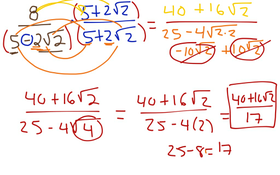 8/(5-2√2) (5+2√2)/(5+2√2) = (40+16√2)/(25-4√2·2)
-10√2 +10√2
(40+16√2)/(25-4√4) = (40+16√2)/(25-4(2)) = (40+16√2)/17
25-8=17